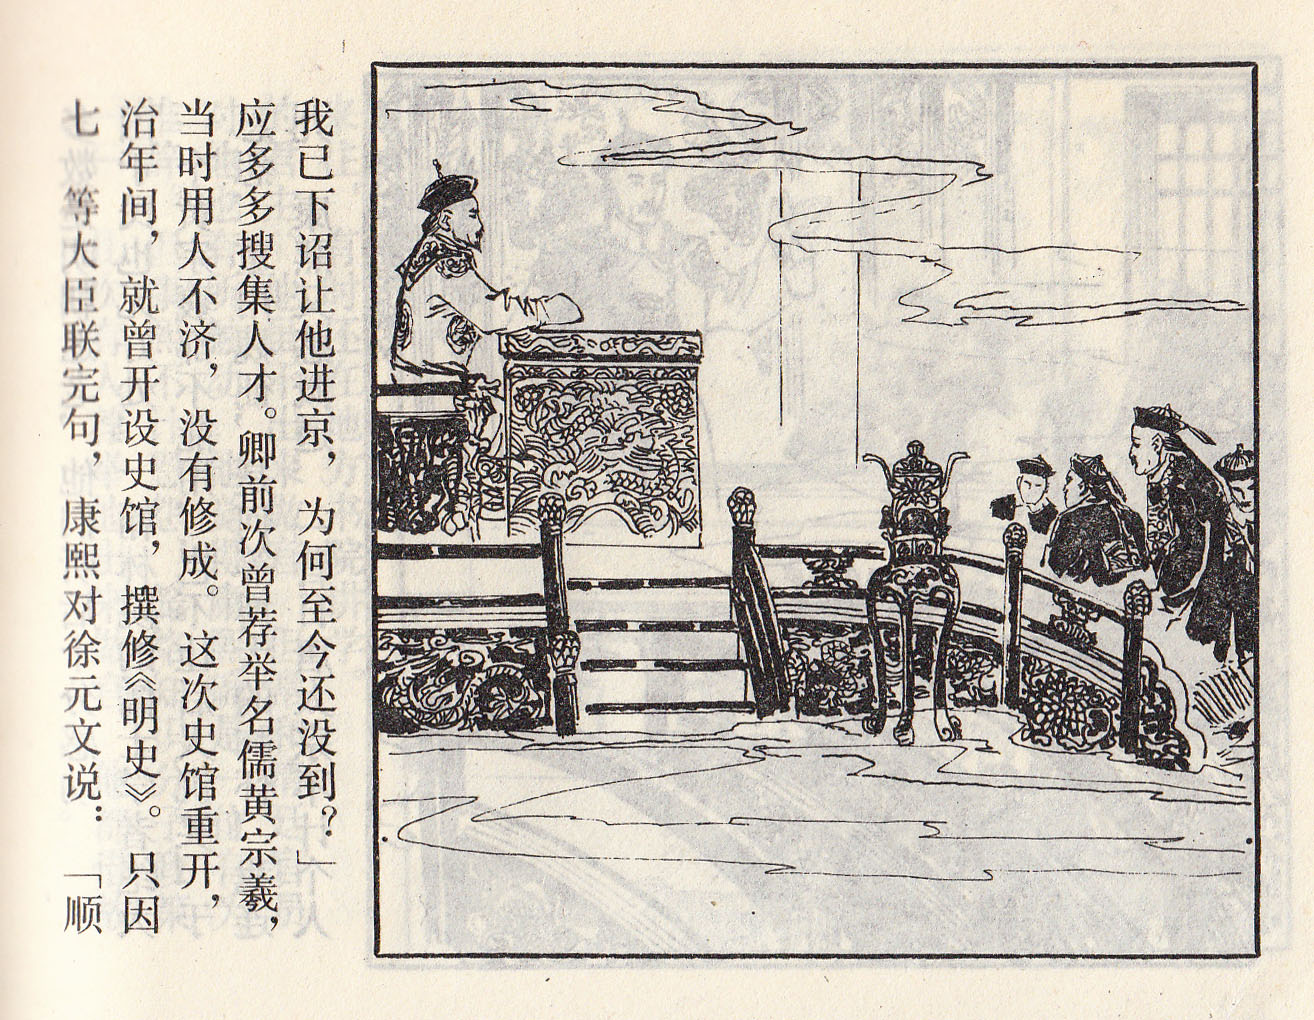 七 等大臣联完句，康熙对徐元文说：「顺
治年间，就曾开设史馆，撰修《明史》。只因
当时用人不济，没有修成。这次史馆重开，
应多多搜集人才。卿前次曾荐举名儒黄宗羲，
我已下诏让他进京，为何至今还没到？」